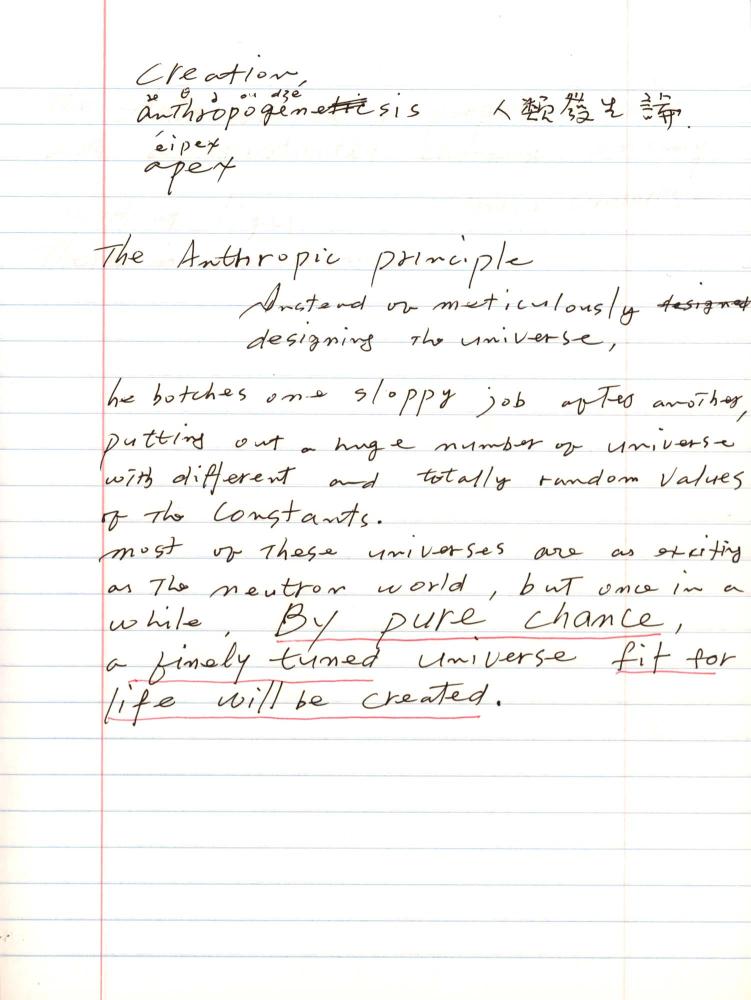 Creation,
æ θ ə ou dʒé
anthropogenesis 人類發生論.
éipex
apex
The Anthropic principle
Instead of meticulously designed
designing the universe,
he botches one sloppy job after another,
putting out a huge number of universe
with different and totally random values
of the constants.
most of these universes are as exciting
as the neutron world, but once in a
while, By pure chance,
a finely tuned universe fit for
life will be created.